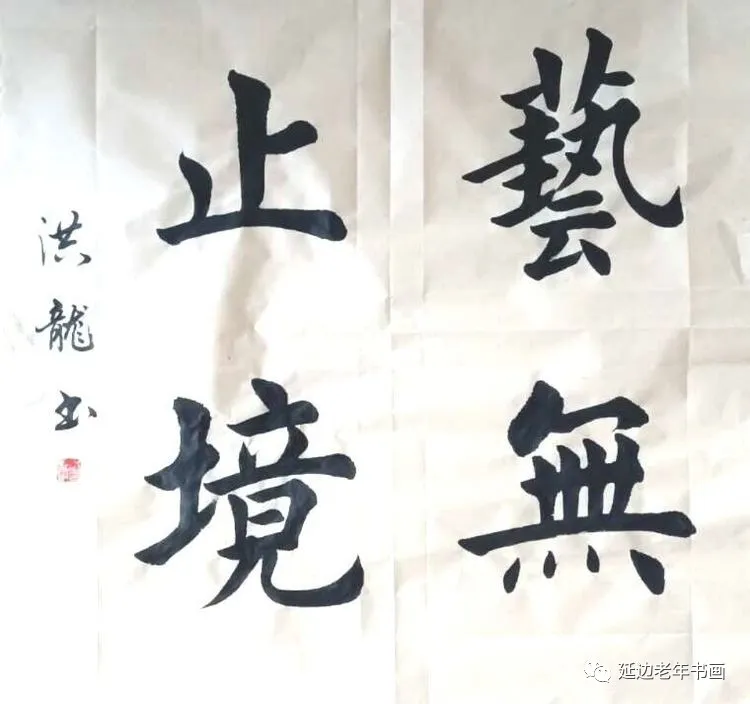 藝無
止境
洪龍书
延边老年书画